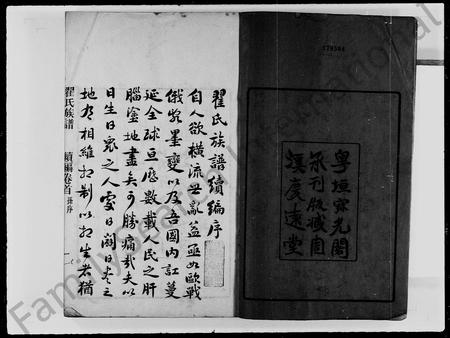 178504
粵垣寶光閣
承刊版藏自
溪度遠堂
翟氏族譜續編序
自人欲橫流世亂益亟如歐戰
俄災墨變以及吾國內訌蔓
延全球亘應數載人民之肝
腦塗地盡矣可勝痛哉夫以
日生日眾之人處日闢日奢之
地有相維相制以相生者猶
翟氏族譜
續編卷首
FamilySearch International